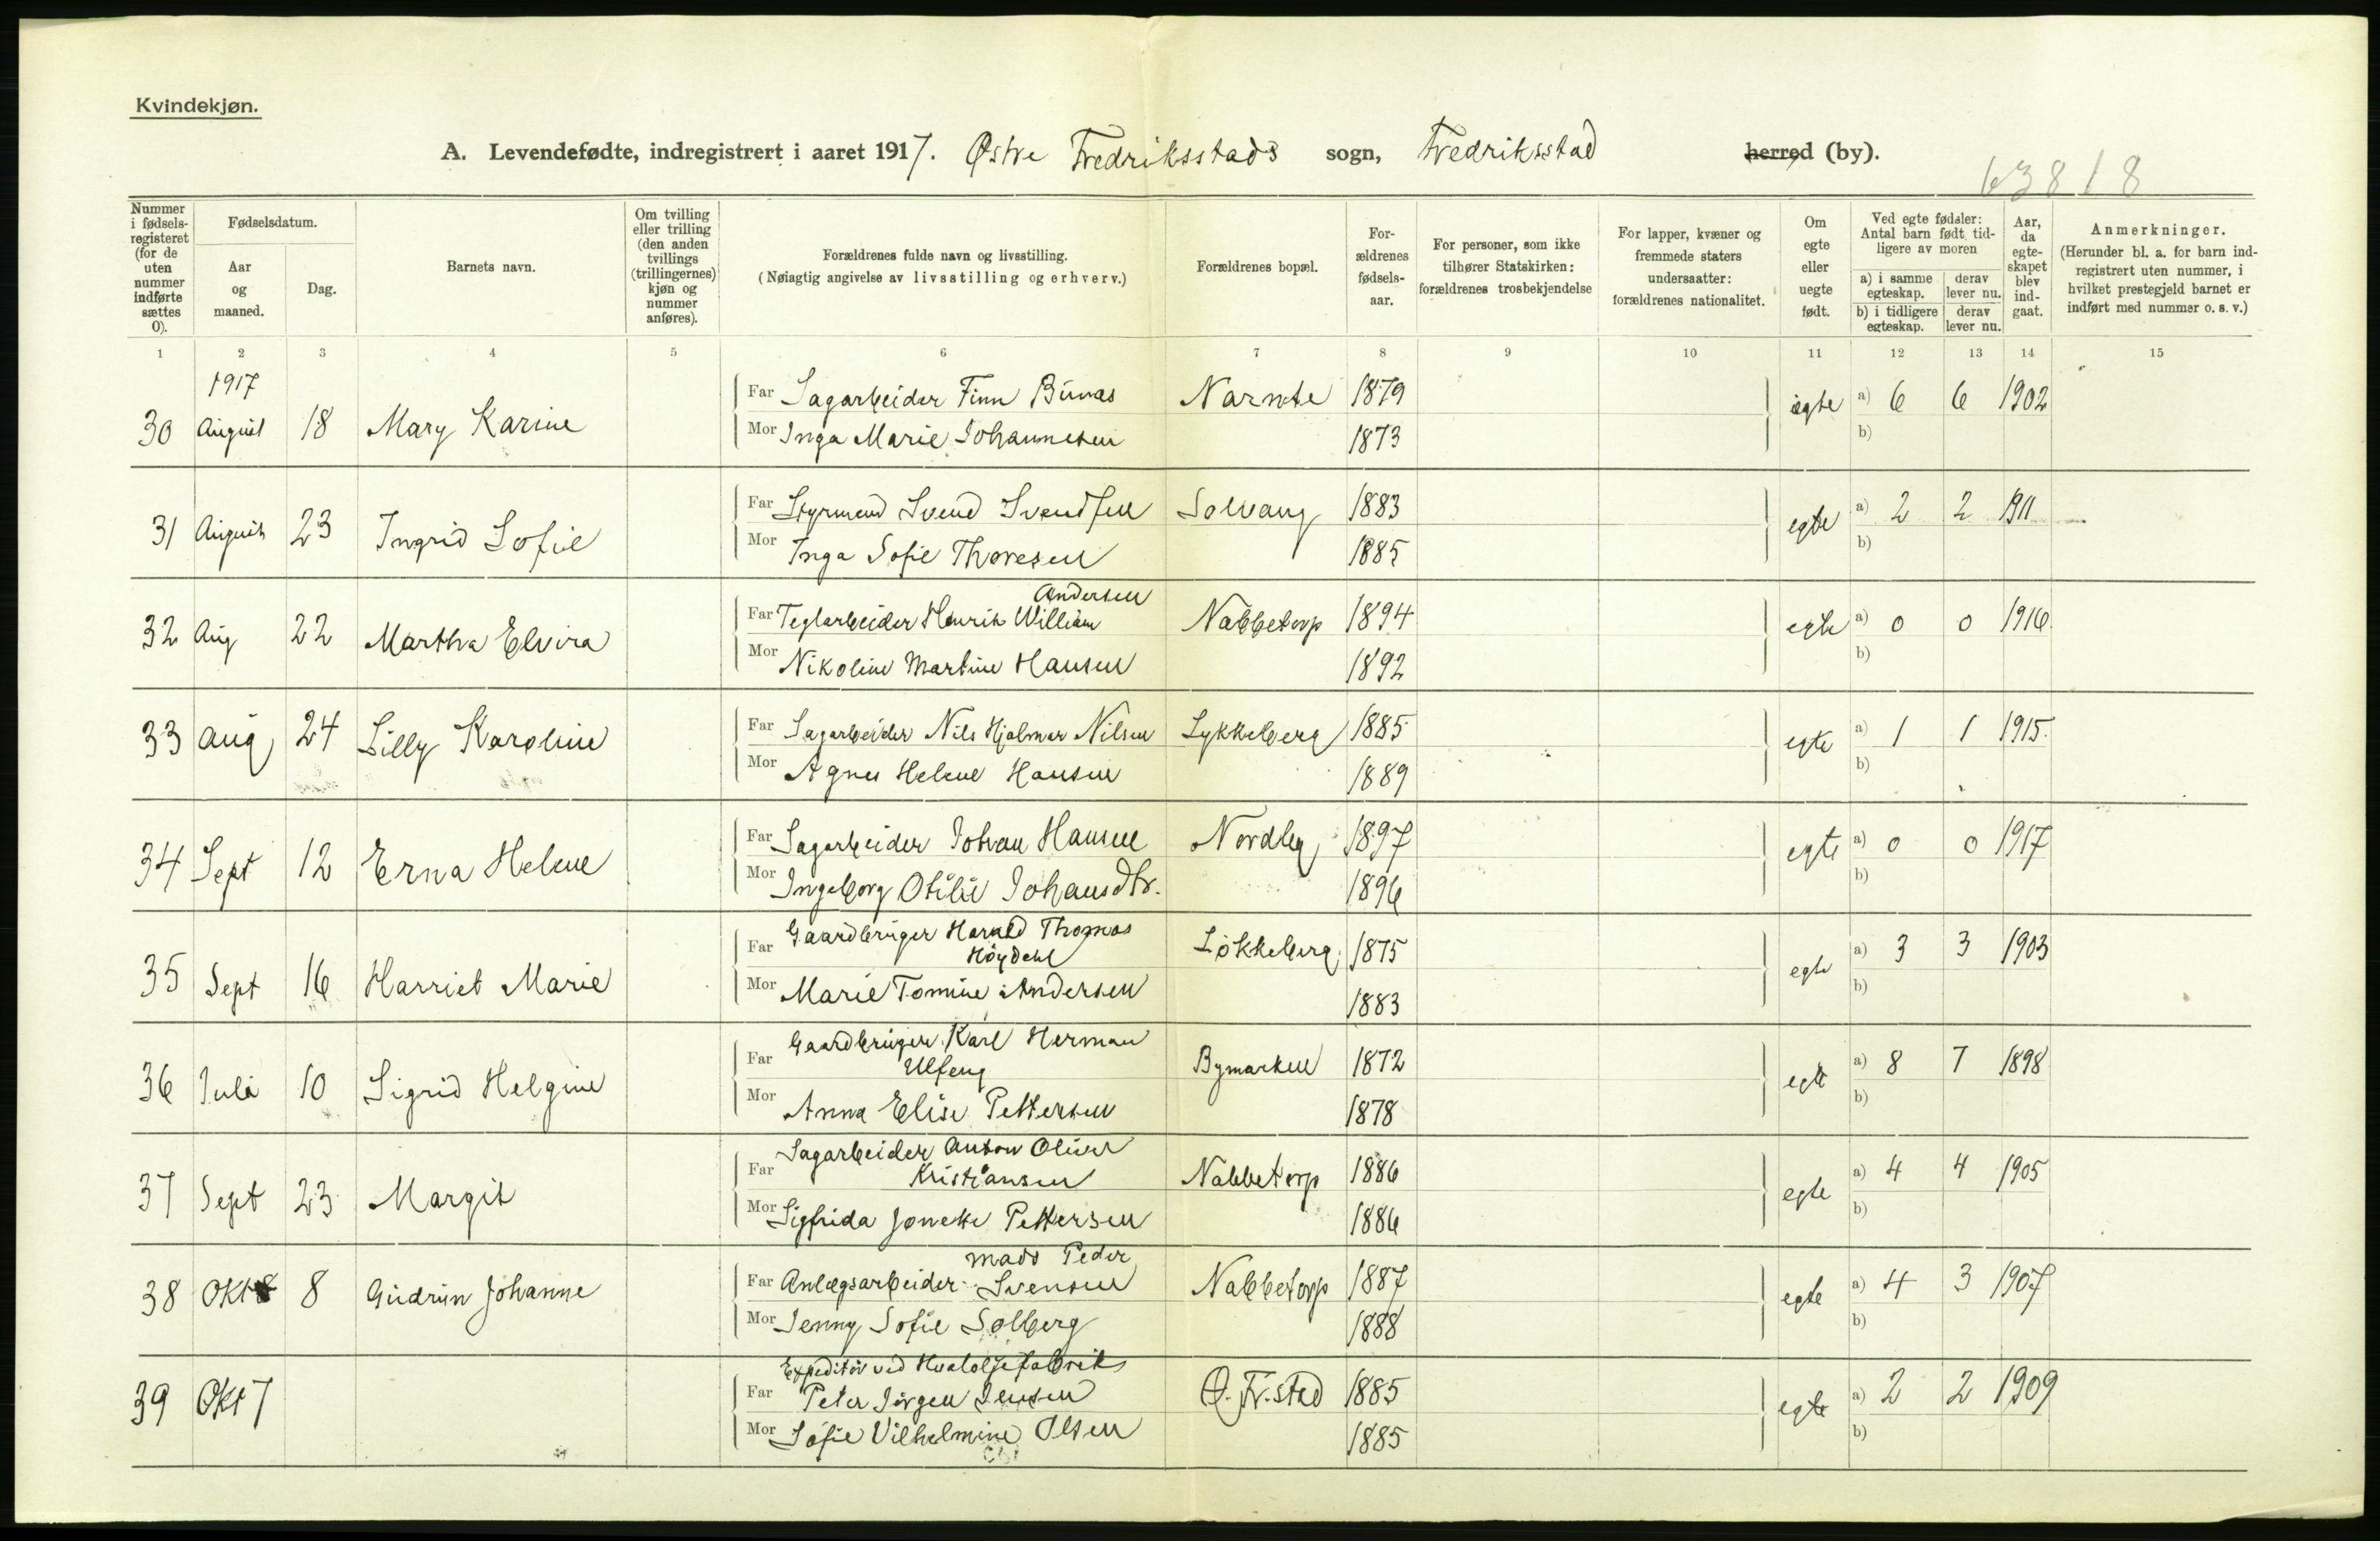 Kvindekjøn.
A. Levendefødte, indregistrert i aaret 1917. Østre Fredriksstads sogn, Fredriksstad herred (by).
63818
Nummer i fødsels-registeret (for de uten nummer indførte sættes 0).
Fødselsdatum.
Aar og maaned.
Dag.
Barnets navn.
Om tvilling eller trilling (den anden tvillings (trillingernes) kjøn og nummer anføres).
Forældrenes fulde navn og livsstilling.
(Nøiagtig angivelse av livsstilling og erhverv.)
Forældrenes bopæl.
For-ældrenes fødsels-aar.
For personer, som ikke tilhører Statskirken: forældrenes trosbekjendelse
For lapper, kvæner og fremmede staters undersaatter: forældrenes nationalitet.
Om egte eller uegte født.
Ved egte fødsler: Antal barn født tid-ligere av moren
a) i samme egteskap. derav lever nu.
b) i tidligere egteskap. derav lever nu.
Aar, da egte-skapet blev ind-gaat.
Anmerkninger.
(Herunder bl. a. for barn ind-registrert uten nummer, i hvilket prestegjeld barnet er indført med nummer o. s. v.)
1 2 3 4 5 6 7 8 9 10 11 12 13 14 15
1917
Far Sagarbeider Finn Narmte 1879 a) 6 6 1902
30 August 18 Mary Karine egte
Mor Inga Marie Johannesen 1873 b)
Far Styrmand Svend Svendsen Solvang 1883 a) 2 2 1911
31 August 23 Ingrid Sofie egte
Mor Inga Sofie Thoresen 1885 b)
Andersen
Far Teglarbeider Henrik William Nabbetorp 1894 a) 0 0 1916
32 Aug 22 Martha Elvira egte
Mor Nikoline Martine Hansen 1892 b)
Far Sagarbeider Nils Hjalmar Nilsen Lykkeberg 1885 a) 1 1 1915.
33 Aug 24 Lilly Karoline egte
Mor Agnes Helene Hansen 1889 b)
Far Sagarbeider Johan Hansen Nordby 1897 a) 0 0 1917
34 Sept 12 Erna Helene egte
Mor Ingeborg Otilie Johansdtr. 1896 b)
Gaardbruger Harald Thomas
Far Høydahl Løkkeberg 1875 a) 3 3 1903
35 Sept 16 Harriet Marie egte
Mor Marie Tomine Andersen 1883 b)
Gaardbruger Karl Herman
Far Ulfeng Bymarken 1872 a) 8 7 1898
36 Juli 10 Sigrid Helgine egte
Mor Anna Elise Pettersen 1878 b)
Sagarbeider Anton Oliver
Far Kristiansen Nabbetorp 1886 a) 4 4 1905
37 Sept 23 Margit egte
Mor Sigfrida Jonette Pettersen 1886 b)
Mads Peder
Far Anlægsarbeider Svensen Nabbetorp 1887 a) 4 3 1907
38 Okt 8 Gudrun Johanne egte
Mor Jenny Sofie Solberg 1888 b)
Expeditør ved Hvaloljefabrik
Far Peter Jørgen Jensen Ø. Fr.stad 1885 a) 2 2 1909
39 Okt 7 egte
Mor Sofie Vilhelmine Olsen 1885 b)